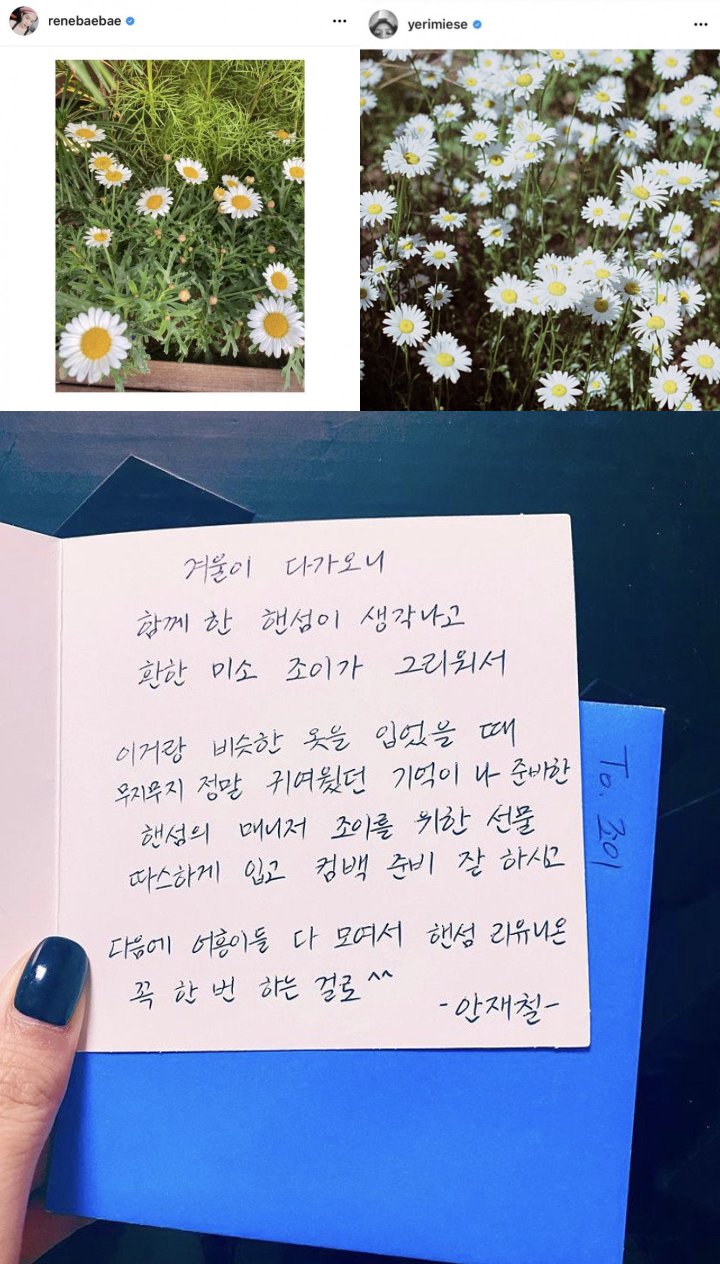 renebaebae
yerimiese
겨울이 다가오니
함께 한 핸섬이 생각나고
환한 미소 조이가 그리워서
이거랑 비슷한 옷을 입었을 때
무지무지 정말 귀여웠던 기억이 나 준비한
핸섬의 매니저 조이를 위한 선물
따스하게 입고 컴백 준비 잘 하시고
다음에 어흥이들 다 모여서 핸섬 리유니온
꼭 한 번 하는 걸로^^
-안재철-
To. 조이